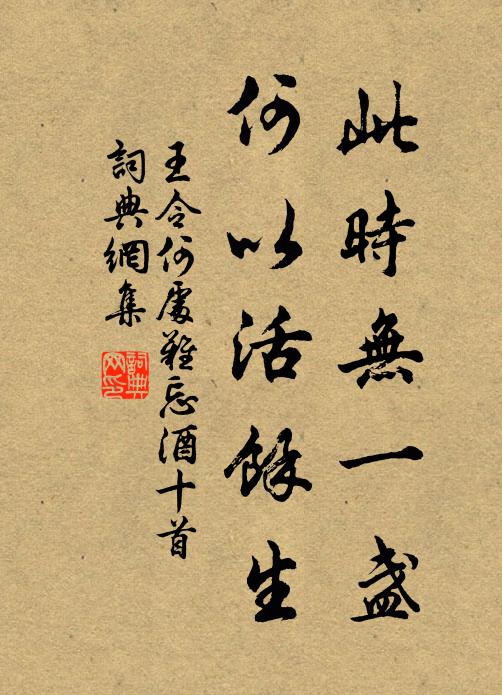 此時無一盞
何以活餘生
王令何處難忘酒十首
詞典網集
詞典網印